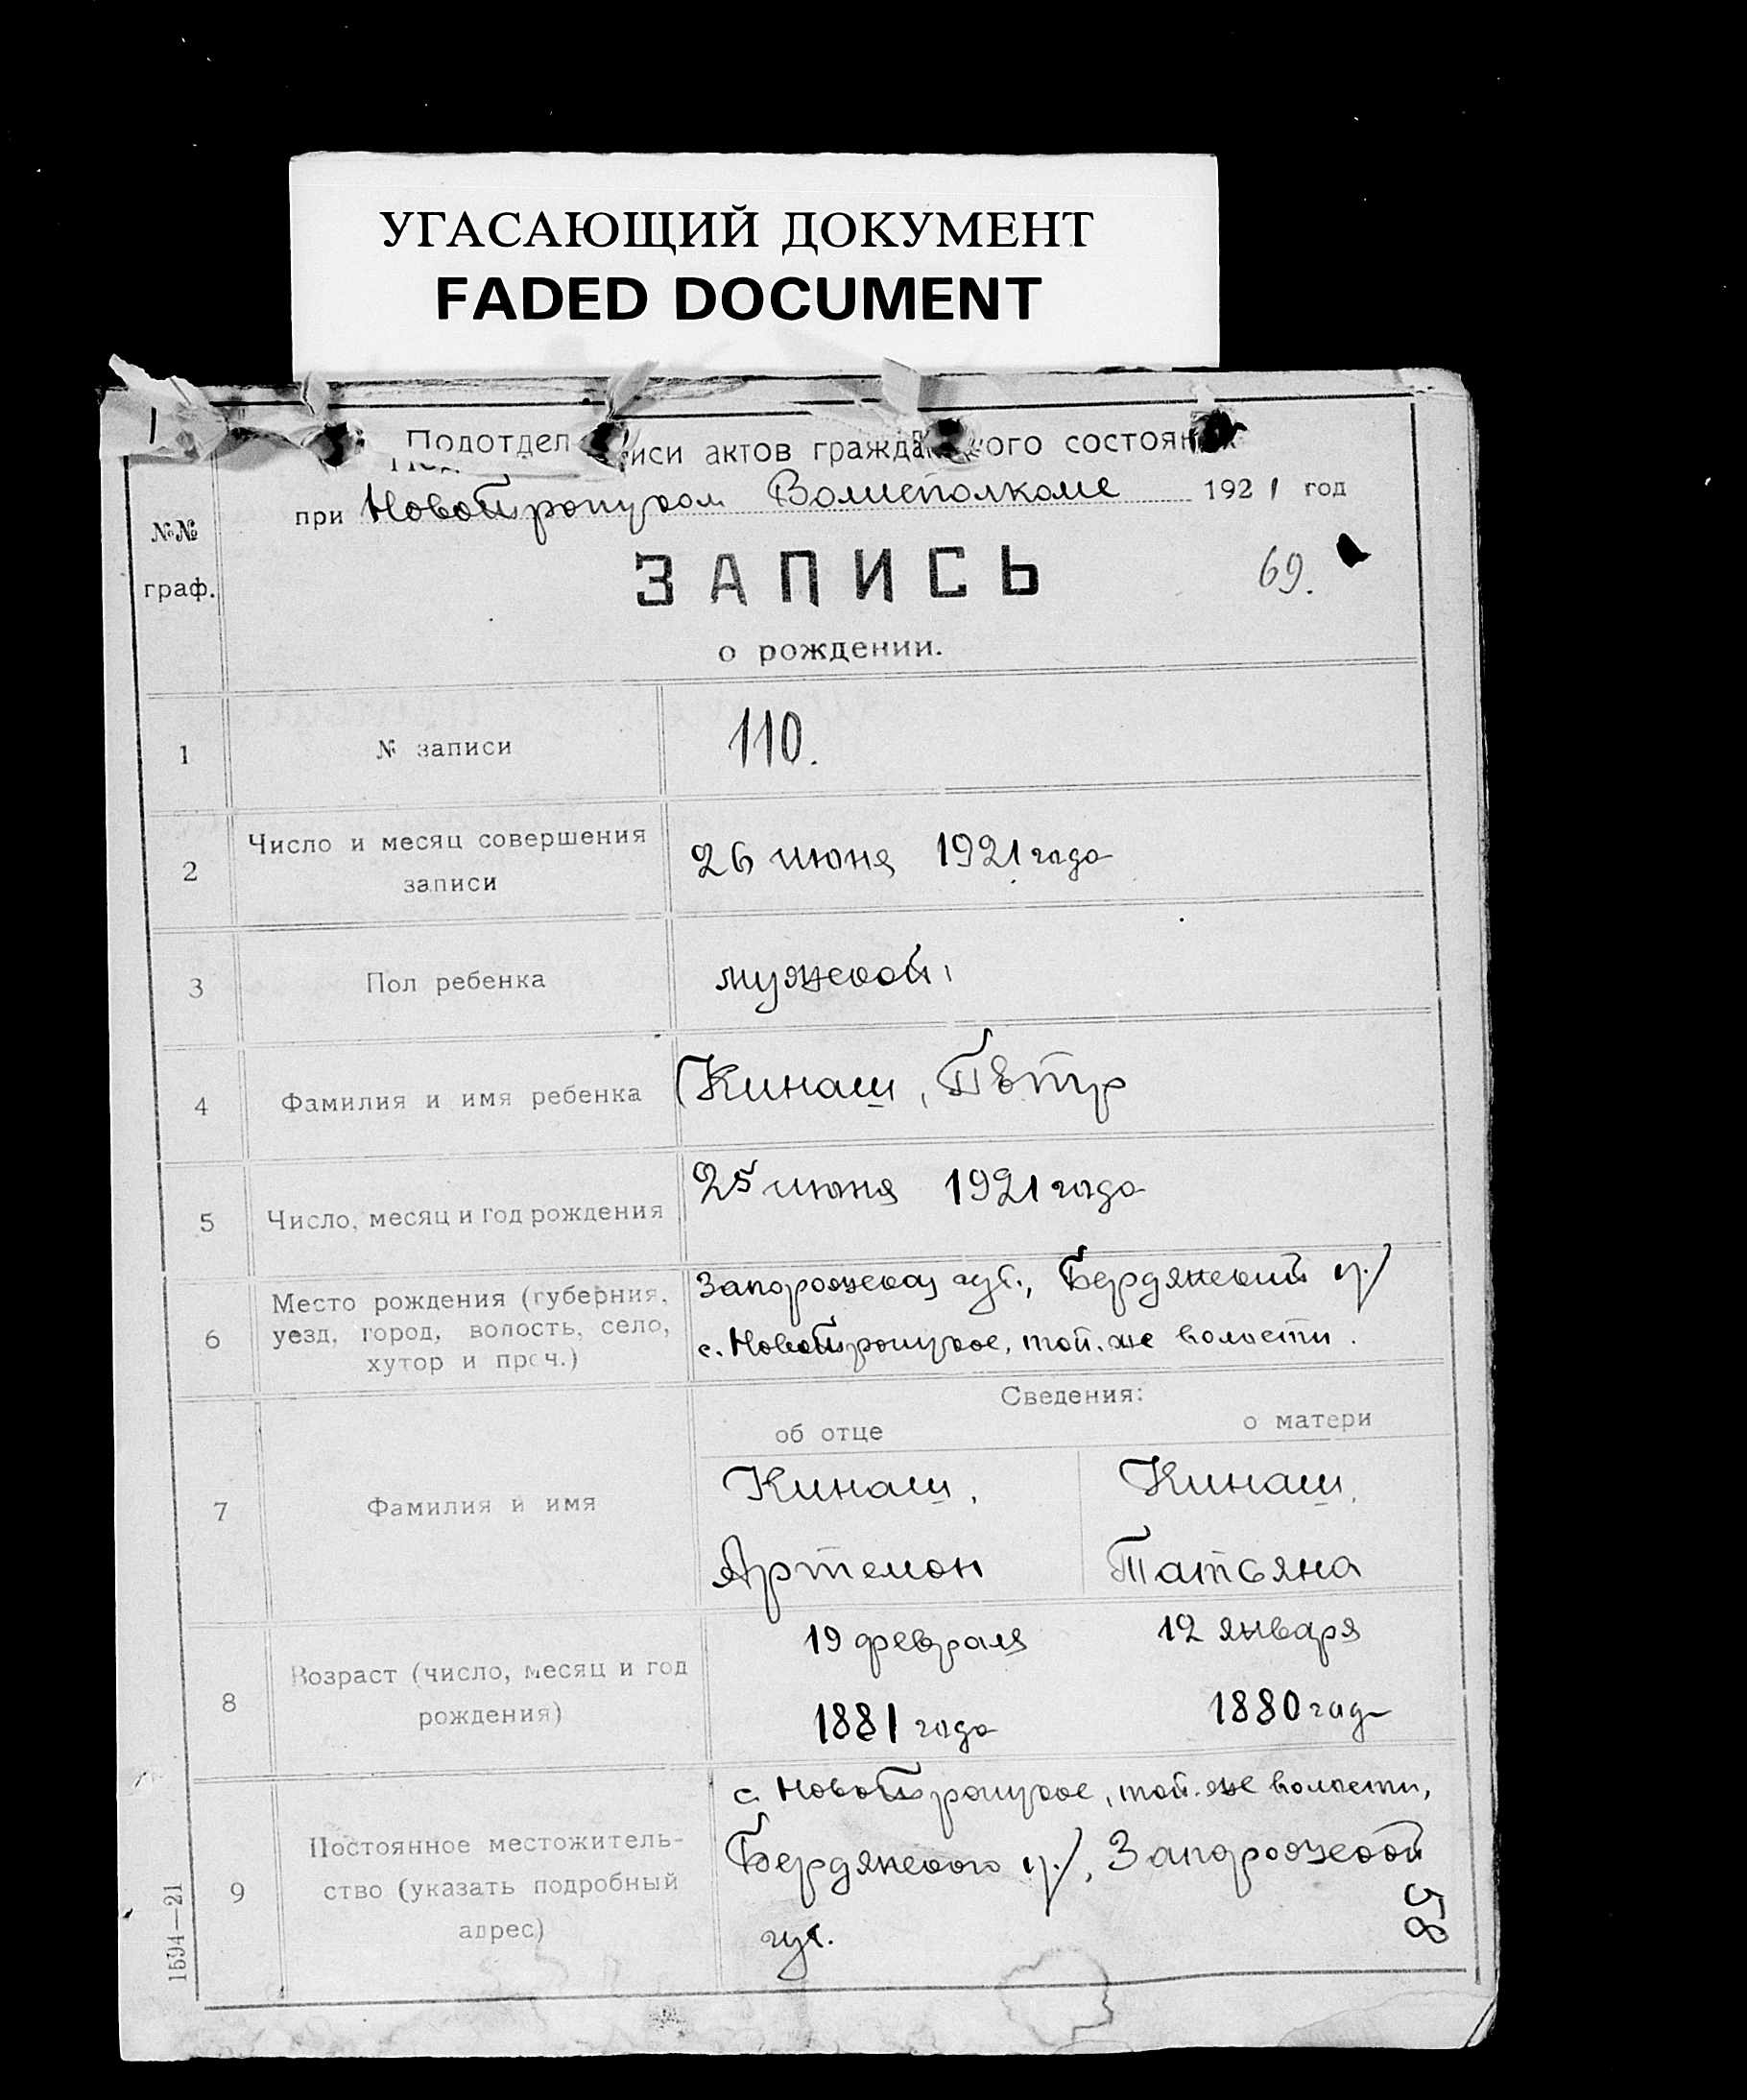 УГАСАЮЩИЙ ДОКУМЕНТ
FADED DOCUMENT
1
Подотдел иси актов гражда ого состоян
при Новотроицком Волисполкоме 1921 год
№№
граф.
ЗАПИСЬ
69.
о рождении.
1 № записи 110.
2 Число и месяц совершения
записи
26 июня 1921 года
3 Пол ребенка мужской
4 Фамилия и имя ребенка Кинаш, Пѣтр
5 Число, месяц и год рождения 25 июня 1921 года
6 Место рождения (губерния,
уезд, город, волость, село,
хутор и проч.)
Запорожская губ., Бердянский у./
с. Новотроицкое, той-же волости.
Сведения:
об отце о матери
7 Фамилия и имя
Кинаш, Кинаш,
Артемон Татьяна
8 Возраст (число, месяц и год
рождения)
19 февраля 12 января
1881 года 1880 года
9 Постоянное местожитель-
ство (указать подробный
адрес)
с. Новотроицкое, той-же волости,
Бердянского у./, Запорожской
губ.
58
1594—21